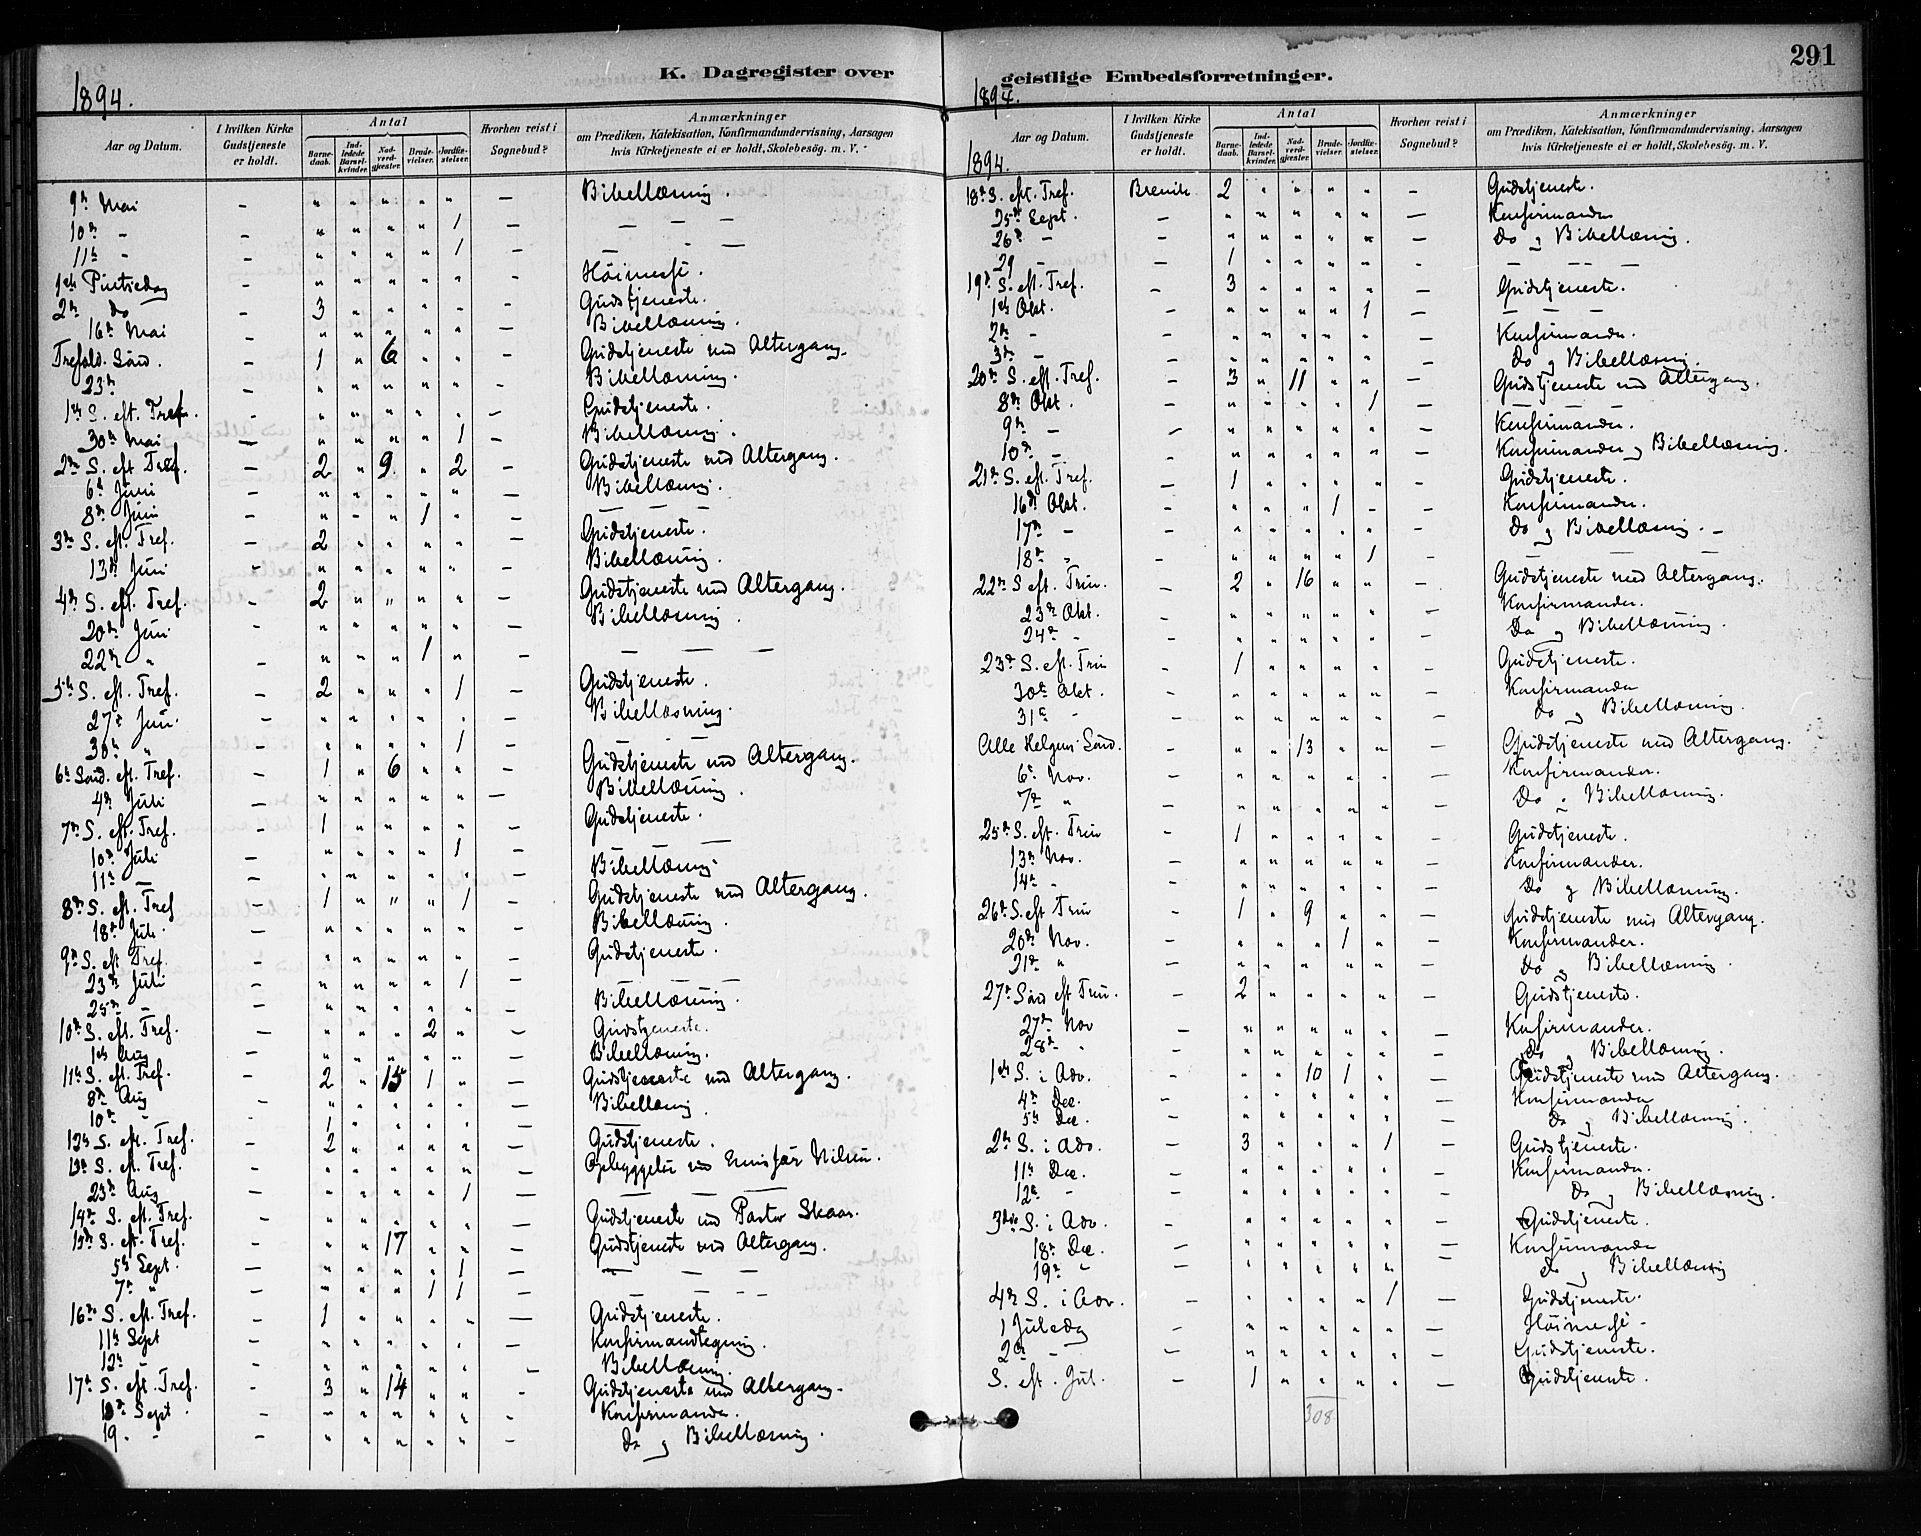 291
K. Dagregister over geistlige Embedsforretninger.
1894.
Aar og Datum. I hvilken Kirke Gudstjeneste er holdt. Antal Barnedaab. Indledede Barselkvinder. Nadverdgjester. Brudevielser. Jordfæstelser. Hvorhen reist i Sognebud? Anmærkninger om Prædiken, Katekisation, Konfirmandundervisning, Aarsagen hvis Kirketjeneste ei er holdt, Skolebesøg. m. V.
9de Mai – " " " " " – Bibellæsning.
10de – – " " " " 1 – – –
11te – – " " " " 1 – – –
1ste Pintsedag – " " " " " – Høimesse.
2den do – 3 " " " " – Gudstjeneste.
16de Mai – " " " " " – Bibellæsning.
Trefold. Sønd. – 1 " 6 " " – Gudstjeneste med Altergang.
23de – " " " " " – Bibellæsning.
1ste S. eft. Tref. – " " " " " – Gudstjeneste.
30te Mai – " " " " 1 – Bibellæsning.
2den S. eft Tref. – 2 " 9 " 2 – Gudstjeneste med Altergang.
6te Juni – " " " " " – Bibellæsning.
8de Juni – " " " 1 " – – – –
3die S. eft. Tref. – 2 " " " " – Gudstjeneste.
13de Juni – " " " " " – Bibellæsning.
4de S. eft. Tref. – 2 " " " " – Gudstjeneste med Altergang.
20de Juni – " " " " " – Bibellæsning.
22de " – " " " 1 " – – – –
5te S. eft. Tref. – 2 " " " 1 – Gudstjeneste.
27de Juni – " " " " " – Bibellæsning.
30te " – " " " " 1 – – – –
6te Sønd. eft. Tref. – 1 " 6 " " – Gudstjeneste med Altergang.
4de Juli – " " " " " – Bibellæsning.
7de S. eft. Tref. – 1 " " " " – Gudstjeneste.
10de Juli – " " " " 1 – – –
11te – – " " " " " – Bibellæsning
8de S. eft. Tref – 1 " " " 1 – Gudstjeneste med Altergang.
18de Juli – " " " " " – Bibellæsning.
9de S. eft Tref. – " " " " " – Gudstjeneste.
23de Juli – " " " " 1 – – – –
25de – – " " " " " – Bibellæsning.
10de S. eft. Tref. – " " " 2 " – Gudstjeneste.
1ste Aug – " " " " " – Bibellæsning.
11te S. eft. Tref. – 2 " 15 1 " – Gudstjeneste med Altergang.
8de Aug – " " " " " – Bibellæsning.
10de " – 1 " " " " – –
12te S. eft. Tref. – 2 " " " " – Gudstjeneste.
13de S. eft. Tref. – " " " " " – Nilsen.
23de Aug – " " " " 1 – – – –
14de S. eft. Tref. – " " " " " – Gudstjeneste ved Pastor Skaar.
15de S. eft. Tref. – " " 17 " " – Gudstjeneste med Altergang.
5te Sept. – " " " " 1 – – – –
7de " – " " " 1 1 – – – –
16de S. eft. Tref. – 1 " " " " – Gudstjeneste.
11te Sept – " " " " " – Konfirmandtegning.
12te – – " " " " " – Bibellæsning.
17de S. eft. Tref. – 3 " 14 " " – Gudstjeneste med Altergang.
18de Sept. – " " " " " – Konfirmander.
19 – – " " " " " – Do og Bibellæsning.
1894.
Aar og Datum. I hvilken Kirke Gudstjeneste er holdt. Antal Barnedaab. Indledede Barselkvinder. Nadverdgjester. Brudevielser. Jordfæstelser. Hvorhen reist i Sognebud? Anmærkninger om Prædiken, Katekisation, Konfirmandundervisning, Aarsagen hvis Kirketjeneste ei er holdt, Skolebesøg. m. V.
1894.
18de S. eft. Tref. Brevik 2 " " " " – Gudstjeneste.
25de Sept. – " " " " " – Konfirmander
26de – – " " " " " – Do og Bibellæsning.
29 – – 1 " " " " – – – –
19de S. eft. Tref. – 3 " " " " – Gudstjeneste.
1ste Okt. – " " " " 1 – – – –
2den – – " " " " " – Konfirmander.
3die – – " " " " " – Do og Bibellæsning.
20de S. eft. Tref. – 3 " 11 " " – Gudstjeneste med Altergang.
8de Okt. – " " " " 1 – – – –
9de – – " " " " " – Konfirmander.
10de – – " " " " " – Konfirmander og Bibellæsning.
21de S. eft. Tref. – 1 " " " " – Gudstjeneste.
16de Okt. – " " " 1 " – Konfirmander.
17de – – " " " " " – Do og Bibellæsning. –
18de " – " " " " 1 – – – –
22de S eft. Trin. – 2 " 16 " " – Gudstjeneste med Altergang.
23de Okt. – " " " " " – Konfirmander.
24de – – " " " " " – Do og Bibellæsning.
23de S. eft. Trin – 1 " " " " – Gudstjeneste.
30te Okt. – " " " " " – Konfirmander
31te " – " " " " " – Do og Bibellæsning.
Alle Helgens Sønd. – " " 13 " " – Gudstjeneste med Altergang.
6te Nov. – " " " " " – Konfirmander.
7de " – " " " " " – Do " Bibellæsning.
25de S. eft. Trin – 1 " " " " – Gudstjeneste.
13de Nov. – " " " " " – Konfirmander.
14de " – " " " " " – Do og Bibellæsning.
26de S. eft Trin – 1 " 9 " " – Gudstjeneste med Altergang.
20de Nov. – " " " 1 " – Konfirmander.
21de " – " " " " " – Do og Bibellæsning.
27de Sønd eft Trin. – 2 " " " " – Gudstjeneste.
27de Nov – " " " " " – Konfirmander.
28de " – " " " " " – Do og Bibellæsning.
1ste S. i Adv. – " " 10 1 " – Gudstjeneste med Altergang.
4de Dec. – " " " " " – Konfirmander
5te Dec. – " " " " " – Do og Bibellæsning.
2den S. i Adv. – 3 " " " 1 – Gudstjeneste.
11te Dec. – " " " " " – Konfirmander.
12te – – " " " " " – Do og Bibellæsning.
3die S. i Adv. – " " " " " – Gudstjeneste.
18de Dec. – " " " " " – Konfirmander
19de " – " " " " " – Do og Bibellæsning
4de S. i Adv. – " " " " 1 – Gudstjeneste.
1 Juledag – " " " " " – Høimesse –
2den – – " " " " " – Gudstjeneste.
S. eft. Jul. – 1 " " " " – Gudstjeneste.
308